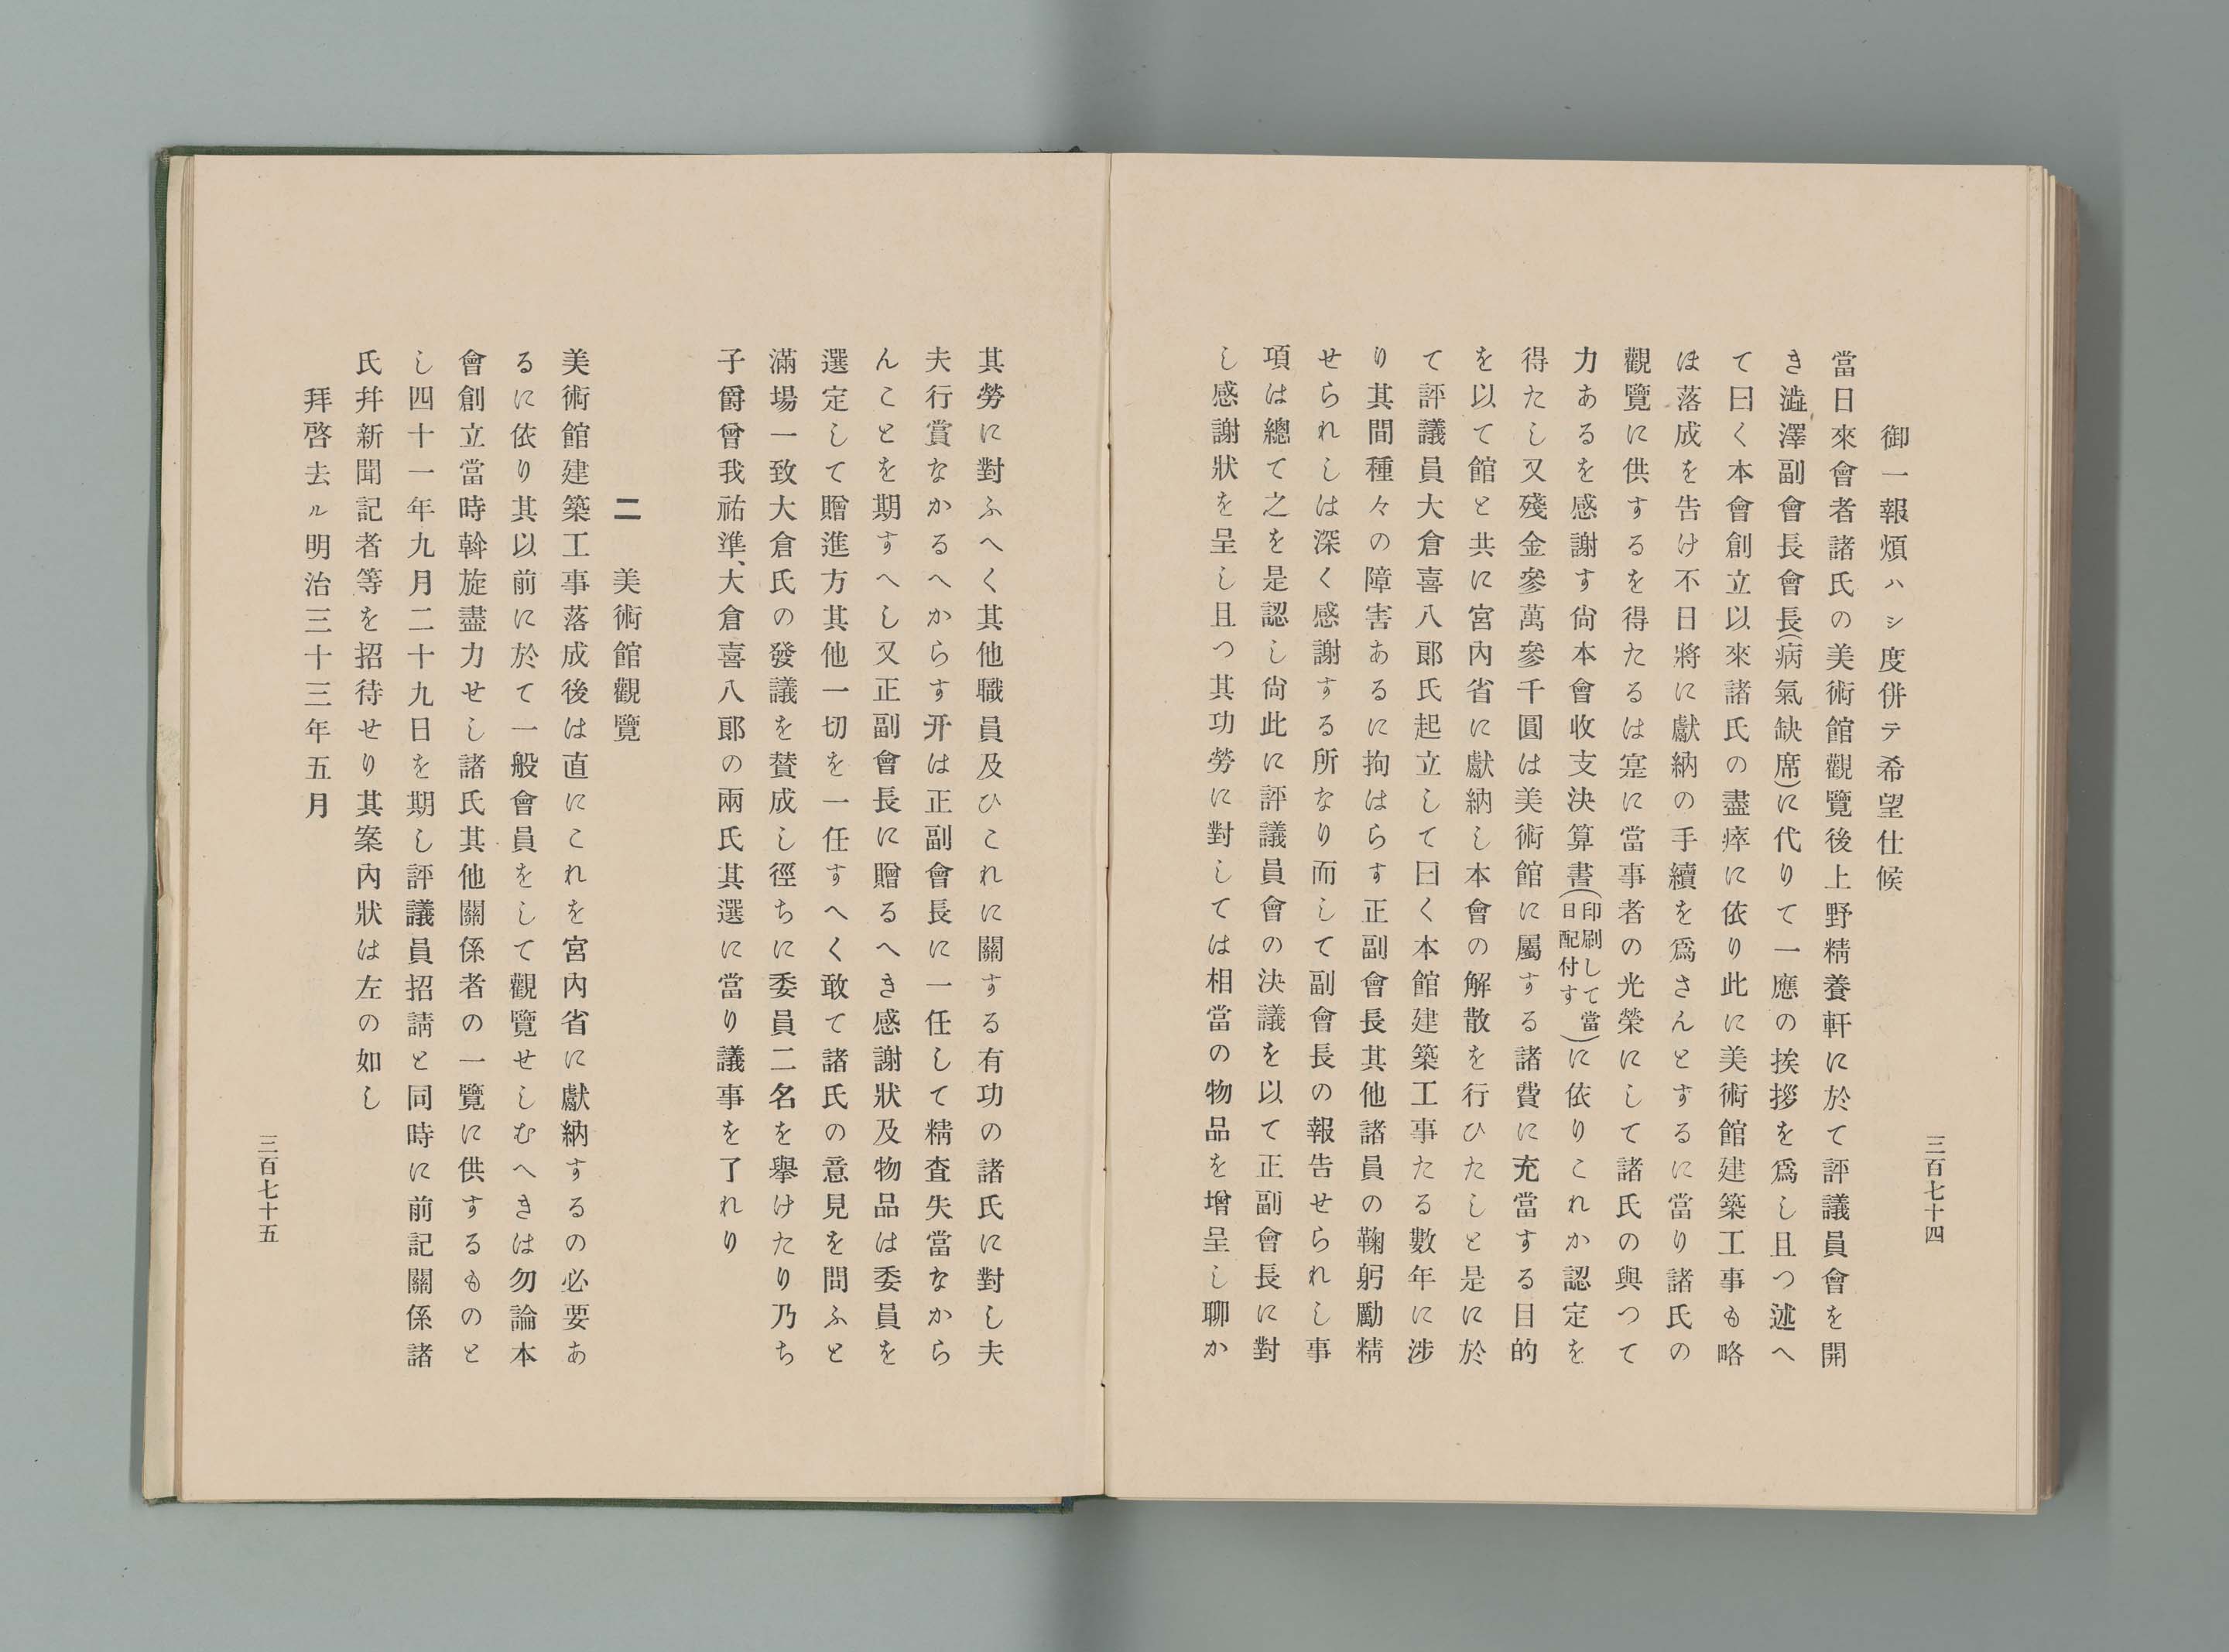 三百七十四
御一報煩ハシ度併テ希望仕候
當日來會者諸氏の美術館觀覽後上野精養軒に於て評議員會を開
き澁澤副會長會長(病氣缺席)に代りて一應の挨拶を爲し且つ述へ
て曰く本會創立以來諸氏の盡瘁に依り此に美術館建築工事も略
ほ落成を告け不日將に獻納の手續を爲さんとするに當り諸氏の
觀覽に供するを得たるは寔に當事者の光榮にして諸氏の與つて
力あるを感謝す尙本會收支決算書(印刷して當日配付す)に依りこれか認定を
得たし又殘金參萬參千圓は美術館に屬する諸費に充當する目的
を以て館と共に宮內省に獻納し本會の解散を行ひたしと是に於
て評議員大倉喜八郞氏起立して曰く本館建築工事たる數年に涉
り其間種々の障害あるに拘はらす正副會長其他諸員の鞠躬勵精
せられしは深く感謝する所なり而して副會長の報告せられし事
項は總て之を是認し尙此に評議員會の決議を以て正副會長に對
し感謝狀を呈し且つ其功勞に對しては相當の物品を增呈し聊か
其勞に對ふへく其他職員及ひこれに關する有功の諸氏に對し夫
夫行賞なかるへからす开は正副會長に一任して精査失當なから
んことを期すへし又正副會長に贈るへき感謝狀及物品は委員を
選定して贈進方其他一切を一任すへく敢て諸氏の意見を問ふと
滿場一致大倉氏の發議を賛成し徑ちに委員二名を擧けたり乃ち
子爵曾我祐準、大倉喜八郞の兩氏其選に當り議事を了れり
二　美術館觀覽
美術館建築工事落成後は直にこれを宮內省に獻納するの必要あ
るに依り其以前に於て一般會員をして觀覽せしむへきは勿論本
會創立當時斡旋盡力せし諸氏其他關係者の一覽に供するものと
し四十一年九月二十九日を期し評議員招請と同時に前記關係諸
氏幷新聞記者等を招待せり其案內狀は左の如し
拜啓去ル明治三十三年五月
三百七十五